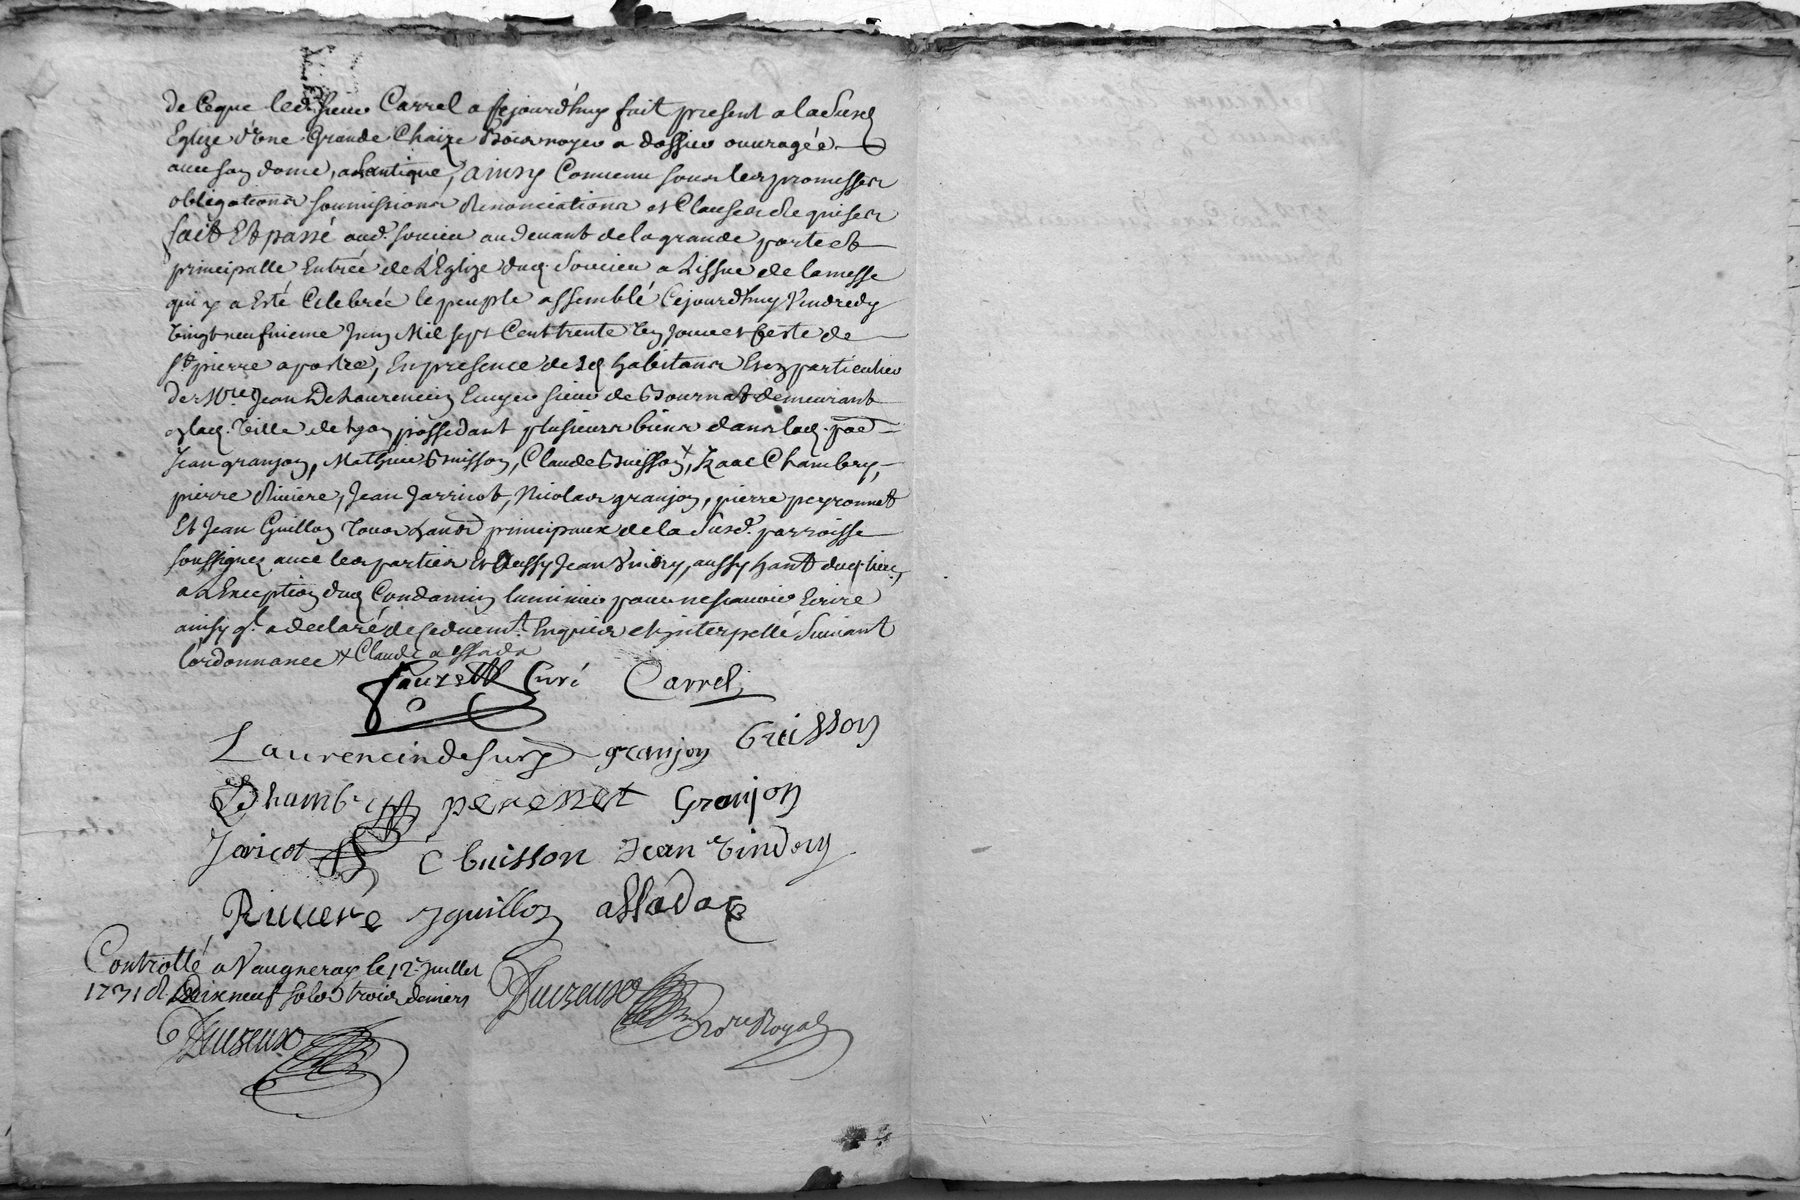 de ceque led. sieur Carrel a cejourd'huy fait present a ladused.
Eglize d'une Grande Chaize bois noyer a dossier ouvragée
avec son dome, a Lantique, ainsy Convenu sous les promesses
obligations soumissions Renonciations et Clauses Requises
fait Et passé aud. soucieu au devant de la grande porte et
principalle Entrée de L'Eglize dud. Soucieu a Lissue de la messe
qui y a Esté Celebrée le peuple assemblé Cejourd'huy Vendredy
vingt neufvieme Juin Mil sept Cent trente un jour et feste de
St. pierre apostre, En presence desd. habitans Et en particulier
de Mre. Jean De Laurencin Ecuyer sieur de demeurant
en lad. Ville de Lyon possedant plusieurs biens dans lad. pae.
Jean granjon, Mathieu Buisson, Claude Buisson x, Izaac Chambry,
pierre Riviere, Jean Jarricot, Nicolas granjon, pierre peyronnet
Et Jean Guillon tous hands. principaux de la susd. parroisse
soussignez avec les parties Et Aussy Jean Vindry, aussy hant. dud. lieu,
a L'Exception dud. Condamin luminier pour ne sçavoir Ecrire
ainsy ql. a declaré de ce duemt. Enquis et interpellé Suivant
l'ordonnance x Claude assada
Curé Carrel
Laurencin granjon Buisson
Chambry perenet Granjon
Jaricot C buisson Jean Vindry
Riviere J guillon assada
Controllé a Vaugneray le 12e. Juillet
1731 R dixneuf sols trois deniers
Duzeux
Duzeux Nore. Royal